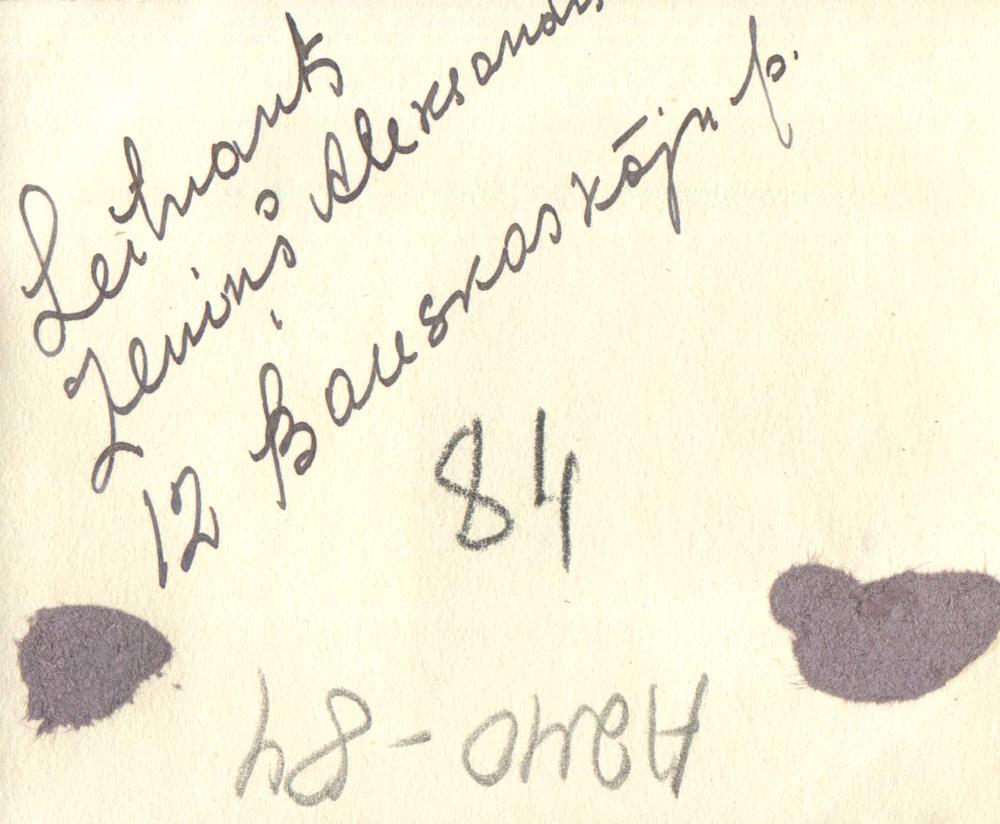 Leitnants
Zeniņš Aleksandrs
12 Bauskas kājn. p.
84